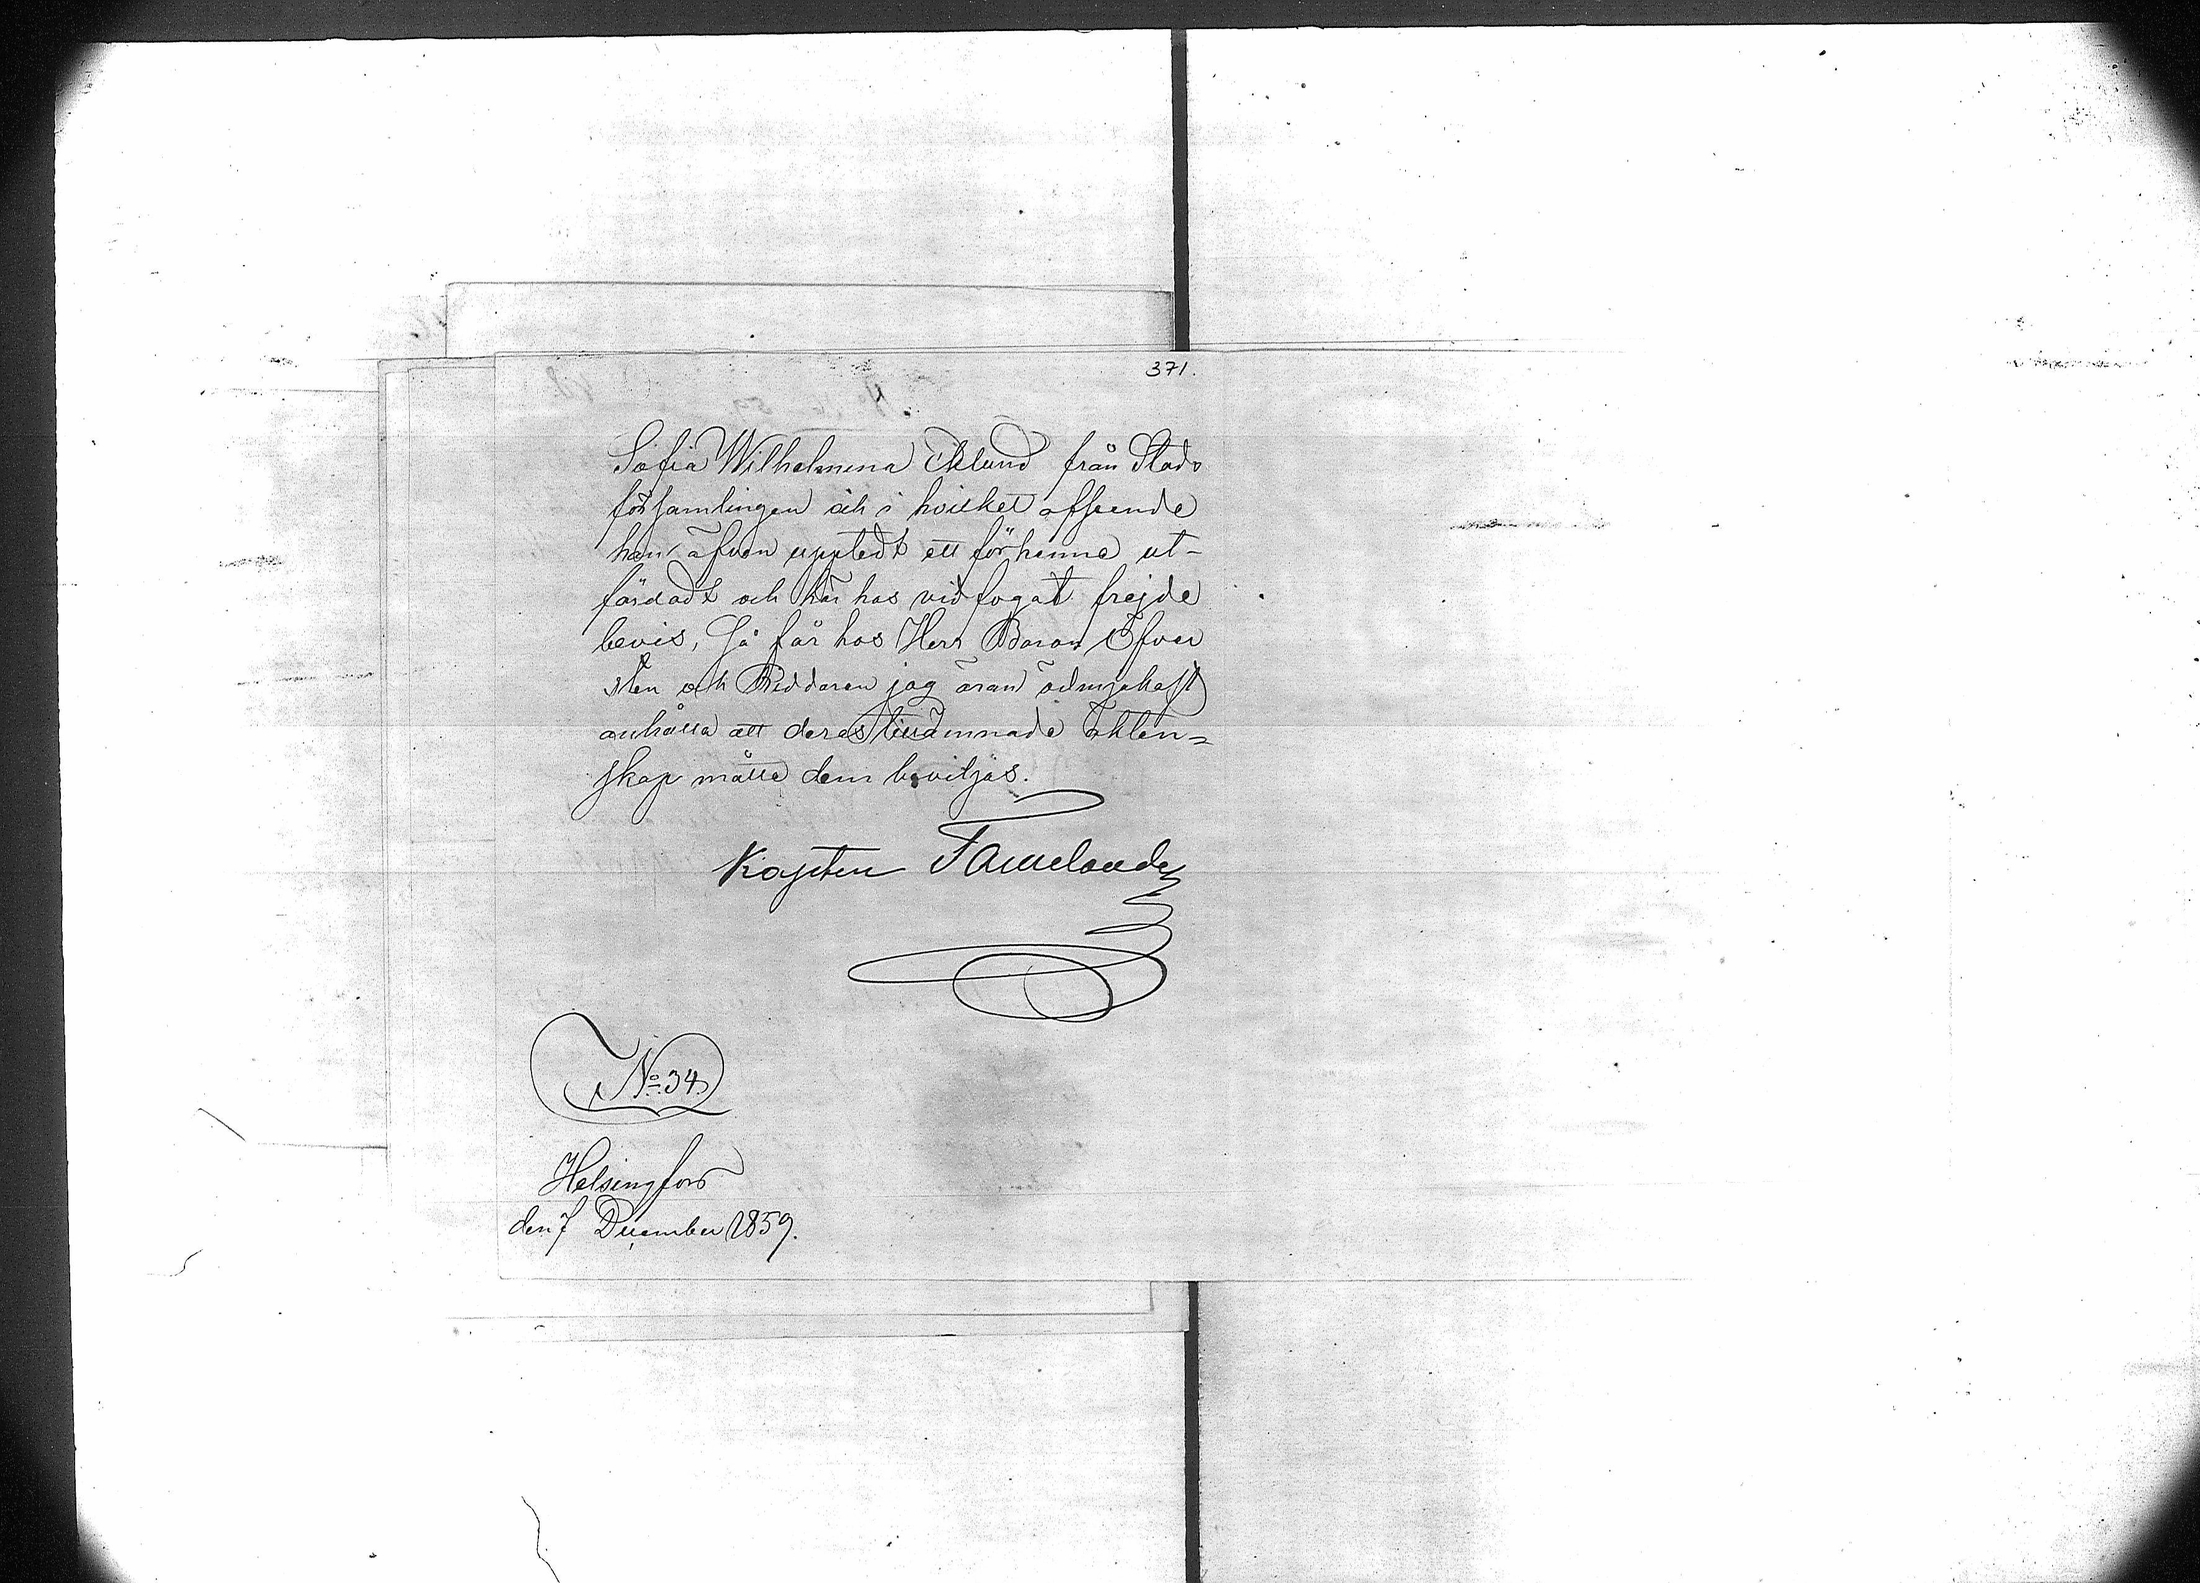 371.
Sofia Wilhelmina Eklund från Stads
församlingen och i hvilket afseende
han äfven upptedt ett för henne ut-
färdadt och här hos vidfogat frejde
bevis, Så får hos Herr Baron Öfver
sten och Riddaren jag äran ödmjukast
anhålla att deras tillämnade Äkten=
skap måtte dem beviljas.
Kapten
No 34.
Helsingfors
den 7 December 1859.